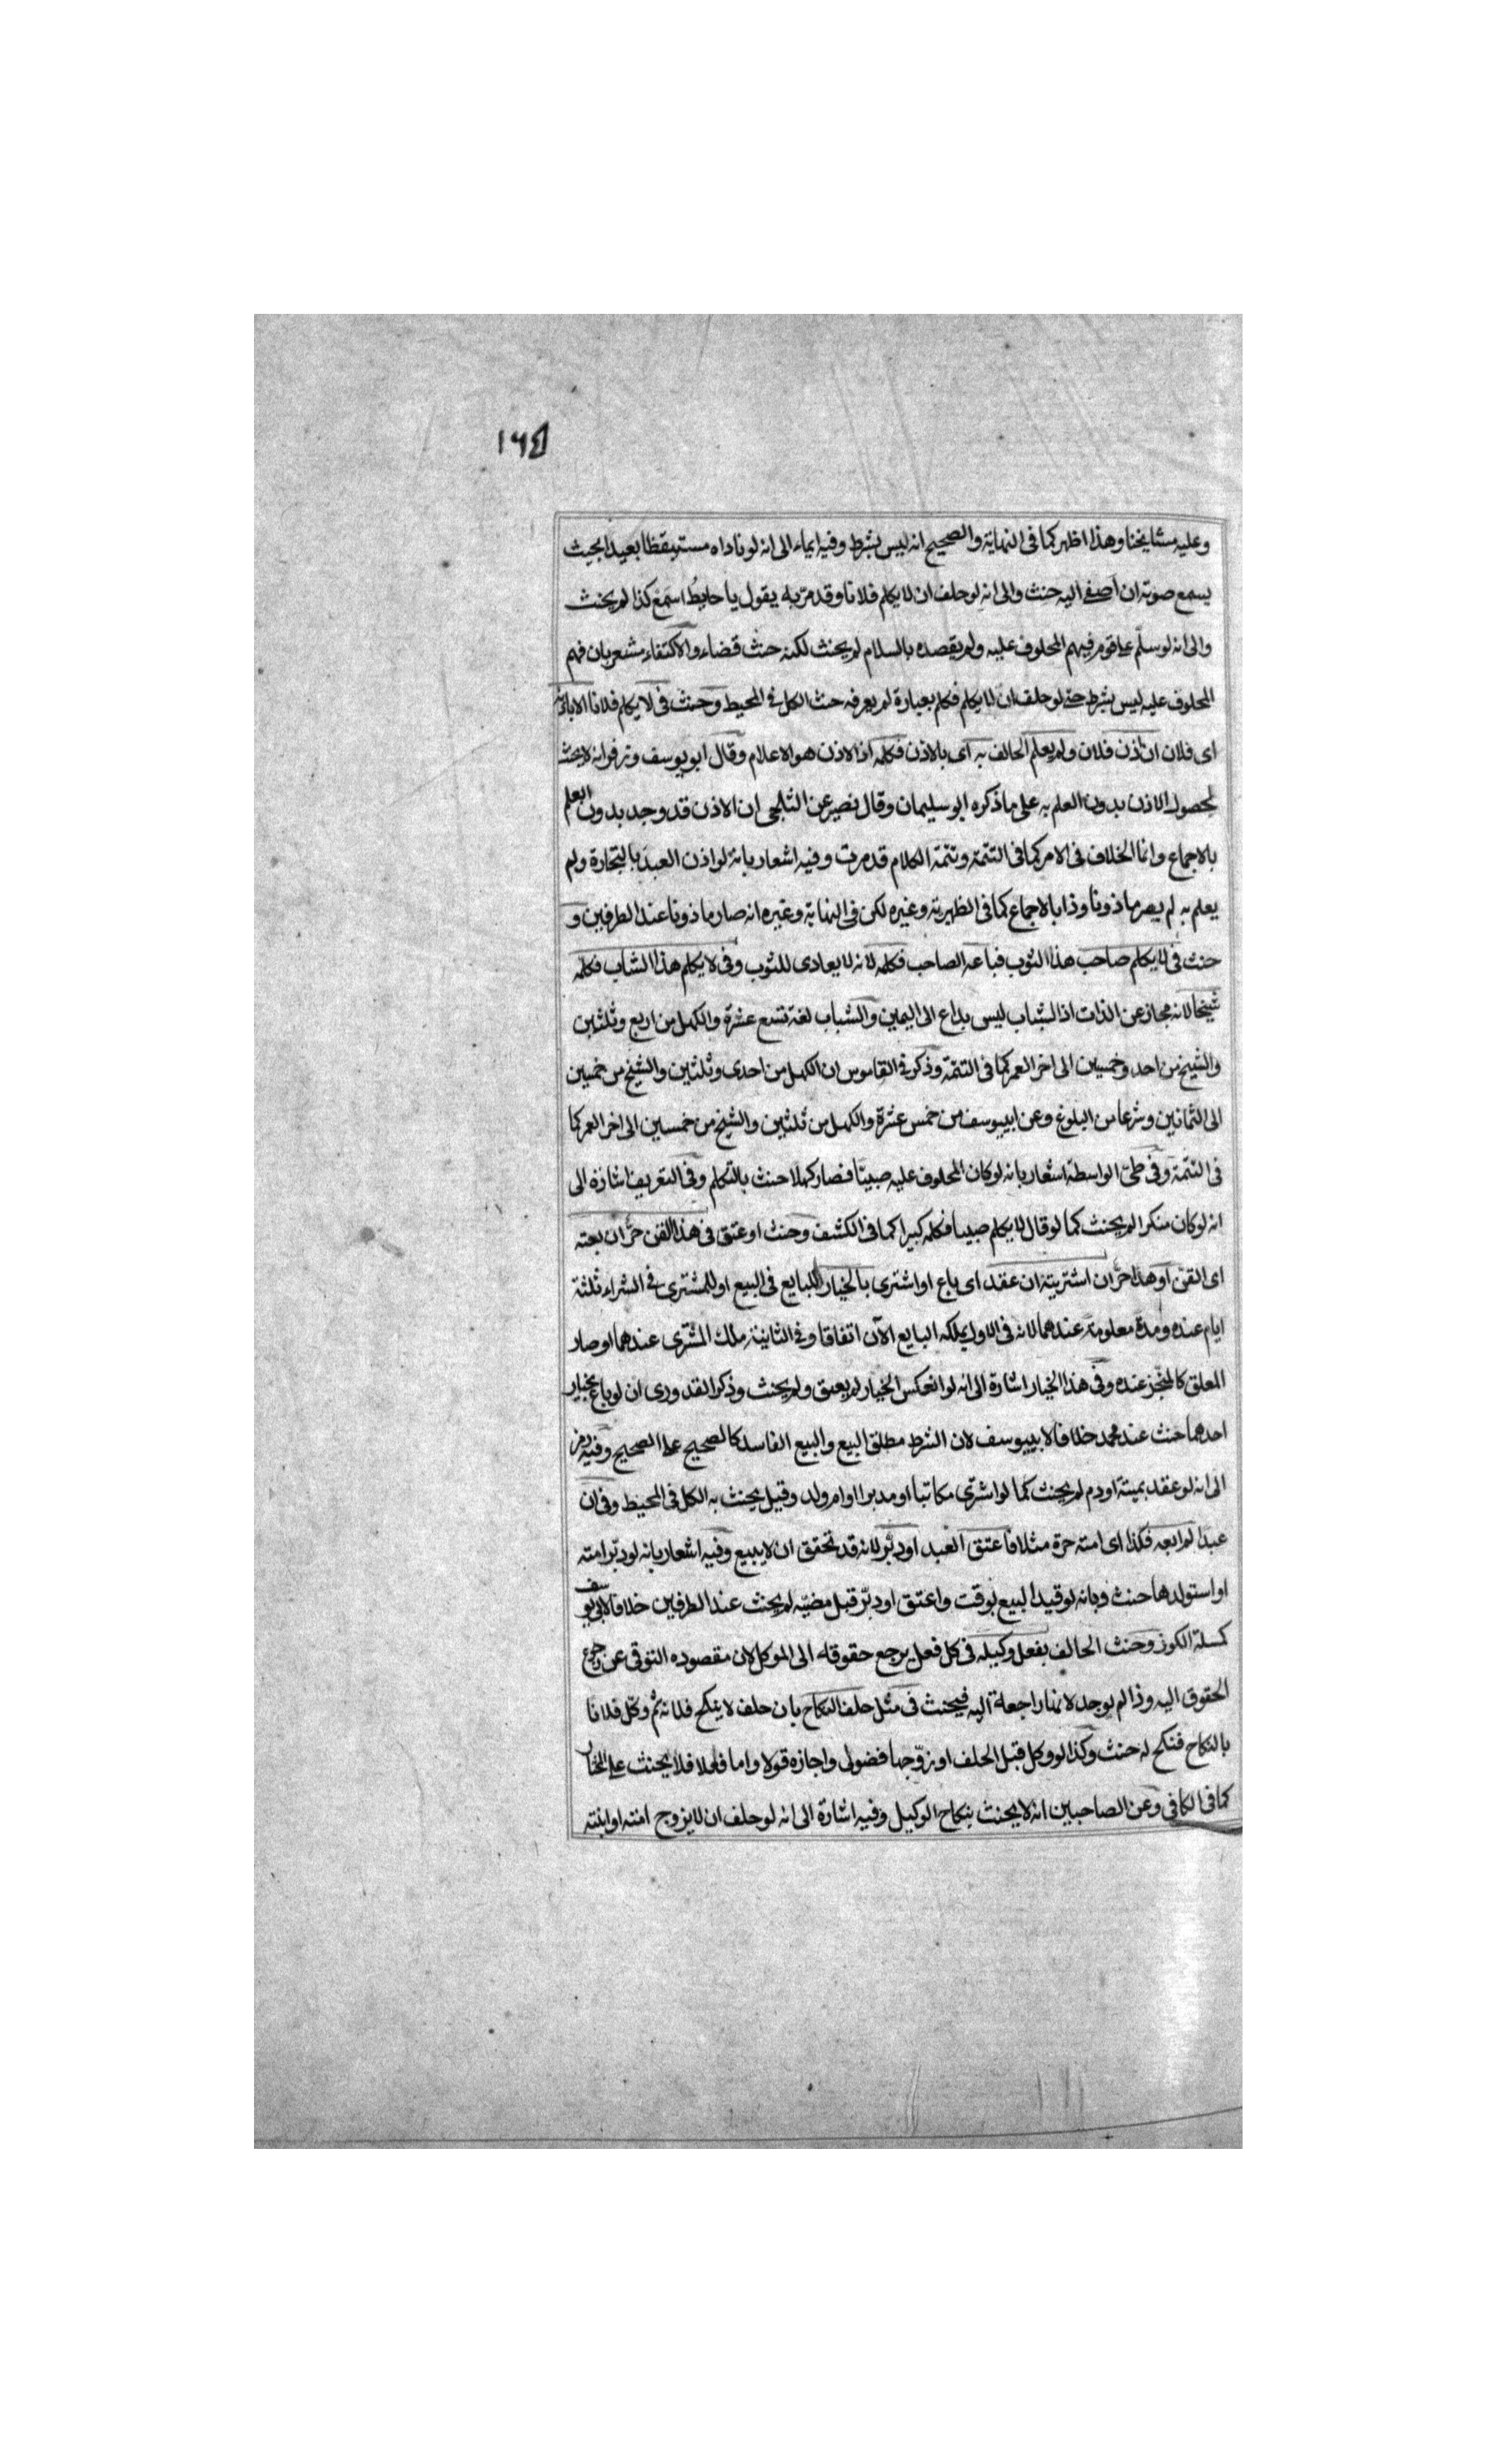 ١٦٤
وعليه مشايخنا وهذا اظهر كما فى النهاية والصحيح انه ليس بشرط وفيه ايماء الى انه لو ناداه مستيقظا بعيدا بحيث
يسمع صوته ان اصغى اليه حنث والى انه لو حلف ان لا يكلم فلانا وقد مرّ به يقول يا حايط اسمع كذا لم يحنث
والى انه لو سلّم على قوم فيهم المحلوف عليه ولم يقصده بالسلام لم يحنث لكنه حنث قضاء والاكتفاء مشعر بان فهم
المحلوف عليه ليس بشرط حتى لو حلف ان لا يكلم فكلم بعبارة لم يعرفه حنث الكل فى المحيط وحنث فى لا يكلم فلانا الا باذنه
اى فلان ان اذن فلان ولم يعلم الحالف به اى بالاذن فكلمه اذ الاذن هو الاعلام وقال ابو يوسف وزفر انه لا يحنث
لحصول الاذن بدون العلم به على ما ذكره ابو سليمان وقال نصير عن الثلجى ان الاذن قد وجد بدون العلم
بالاجماع وانما الخلاف فى الامر كما فى التتمة وتتمة الكلام قد مرت وفيه اشعار بانه لو اذن العبد بالتجارة ولم
يعلم به لم يصر ماذونا وذا بالاجماع كما فى الظهيرية وغيره لكن فى النهاية وغيره انه صار ماذونا عند الطرفين و
حنث فى لا يكلم صاحب هذا الثوب فباعه الصاحب فكلمه لانه لا يعادى للثوب وفى لا يكلم هذا الشاب فكلمه
شيخا لانه مجاز عن الذات اذ الشباب ليس بداع الى اليمين والشباب لغة تسع عشرة والكهل من اربع وثلثين
والشيخ من احد وخمسين الى اخر العمر كما فى التتمّة وذكر فى القاموس ان الكهل من احدى وثلثين والشيخ من خمسين
الى الثمانين وشرعا من البلوغ وعن ابييوسف من خمس عشرة والكهل من ثلثين والشيخ من خمسين الى اخر العمر كما
فى التتمّة وفى طىّ الواسطة اشعار بانه لو كان المحلوف عليه صبيّا فصار كهلا حنث بالتكلم وفى التعريف اشارة الى
انه لو كان منكرا لم يحنث كما لو قال لا يكلم صبيا فكلمه كبيرا كما فى الكشف وحنث او عتق فى هذا القن حرّ ان بعته
اى القنّ او هذا حرّ ان اشتريته ان عقد اى باع او اشترى بالخيار للبايع فى البيع او للمشترى فى الشراء ثلثة
ايام عنده ومدة معلومة عندهما لانه فى الاول يملكه البايع الآن اتفاقا وفى الثانية ملك المشترى عندهما او صار
المعلق كالمنجّز عنده وفى هذا الخيار اشارة الى انه لو انعكس الخيار لم يعتق ولم يحنث وذكر القدورى ان لو باع بخيار
احدهما حنث عند محمد خلافا لابييوسف لان الشرط مطلق البيع والبيع الفاسد كالصحيح على الصحيح وفيه رمز
الى انه لو عقد بميتة او دم لم يحنث كما لو اشترى مكاتبا او مدبرا او ام ولد وقيل يحنث به الكل فى المحيط وفى ان
عبدا لم ابعه فكذا اى امته حرة مثلا فاعتق العبد او دبّر لانه قد تحقق ان لا يبيع وفيه اشعار بانه لو دبّر امته
او استولدها حنث وبانه لو قيد البيع بوقت واعتق او دبّر قبل مضيّه لم يحنث عند الطرفين خلافا لابى يوسف
كمسلة الكوز وحنث الحالف بفعل وكيله فى كل فعل يرجع حقوقه الى الموكل لان مقصوده التوقى عن رجوع
الحقوق اليه وذا لم يوجد لانها راجعة اليه فيحنث فى مثل حلف النكاح بان حلف لا ينكح فلانة ثم وكّل فلانا
بالنكاح فنكح له حنث وكذا لو وكل قبل الحلف او زوّجها فضولى واجازه قولا واما فعلا فلا يحنث على المختار
كما فى الكافى وعن الصاحبين انه لا يحنث بنكاح الوكيل وفيه اشارة الى انه لو حلف ان لا يزوج امته او ابنته